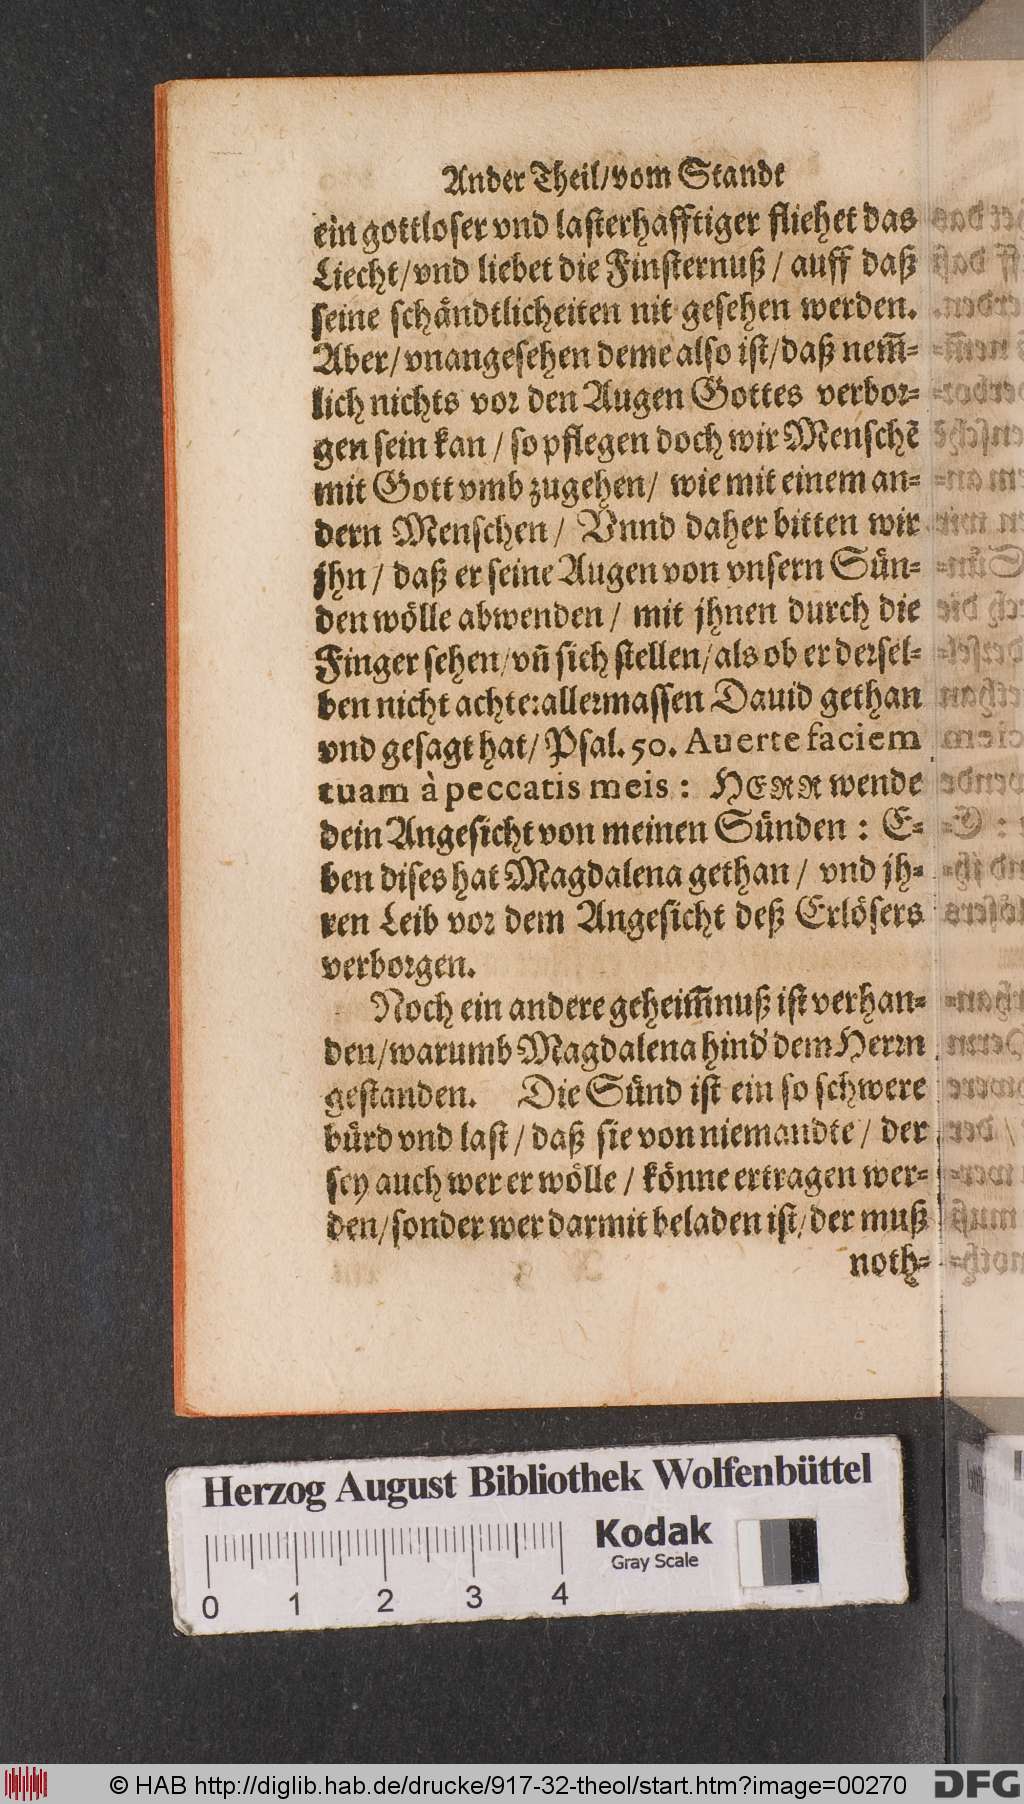 Ander Theil/vom Stande
ein gottloser vnd lasterhafftiger fliehet das
Liecht/vnd liebet die Finsternuß / auff daß
seine schändtlicheiten nit gesehen werden.
Aber/vnangesehen deme also ist/daß nem̃=
lich nichts vor den Augen Gottes verbor=
gen sein kan / so pflegen doch wir Menschẽ
mit Gott vmb zugehen/ wie mit einem an=
dern Menschen / Vnnd daher bitten wir
jhn / daß er seine Augen von vnsern Sün=
den wölle abwenden / mit jhnen durch die
Finger sehen/vñ sich stellen/als ob er dersel=
ben nicht achte:allermassen Dauid gethan
vnd gesagt hat/ Psal. 50. Auerte faciem
tuam à peccatis meis : HERR wende
dein Angesicht von meinen Sünden : E=
ben dises hat Magdalena gethan / vnd jh=
ren Leib vor dem Angesicht deß Erlösers
verborgen.
Noch ein andere geheim̃nuß ist verhan=
den/warumb Magdalena hind' dem Herrn
gestanden. Die Sünd ist ein so schwere
bürd vnd last / daß sie von niemandte / der
sey auch wer er wölle / könne ertragen wer=
den/sonder wer darmit beladen ist/der muß
noth=
Herzog August Bibliothek Wolfenbüttel
Kodak
Gray Scale
0 1 2 3 4
© HAB http://diglib.hab.de/drucke/917-32-theol/start.htm?image=00270
DFG